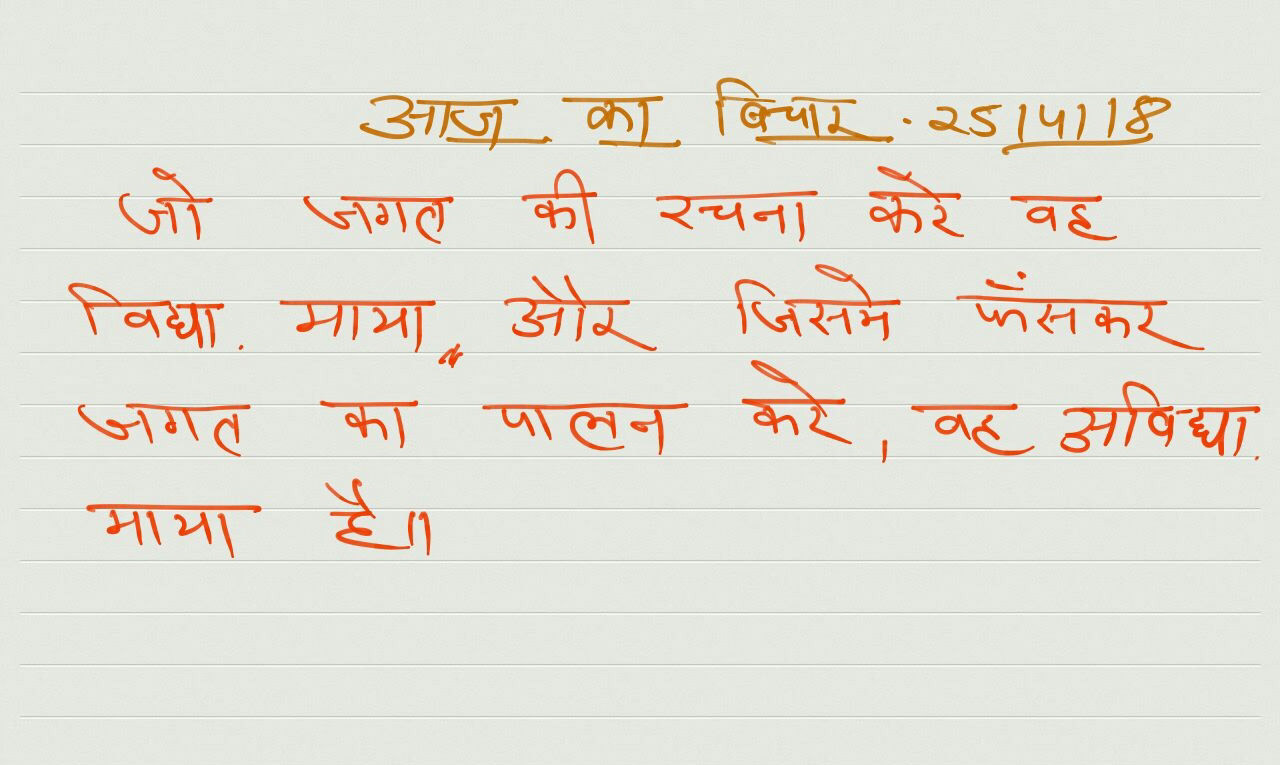 आज का बिचार. 2514118
जो जगत की रचना करे वह
विद्या. माया, और जिसमे फंसकर
जगत का पालन करे, वह अविद्या.
माया है॥